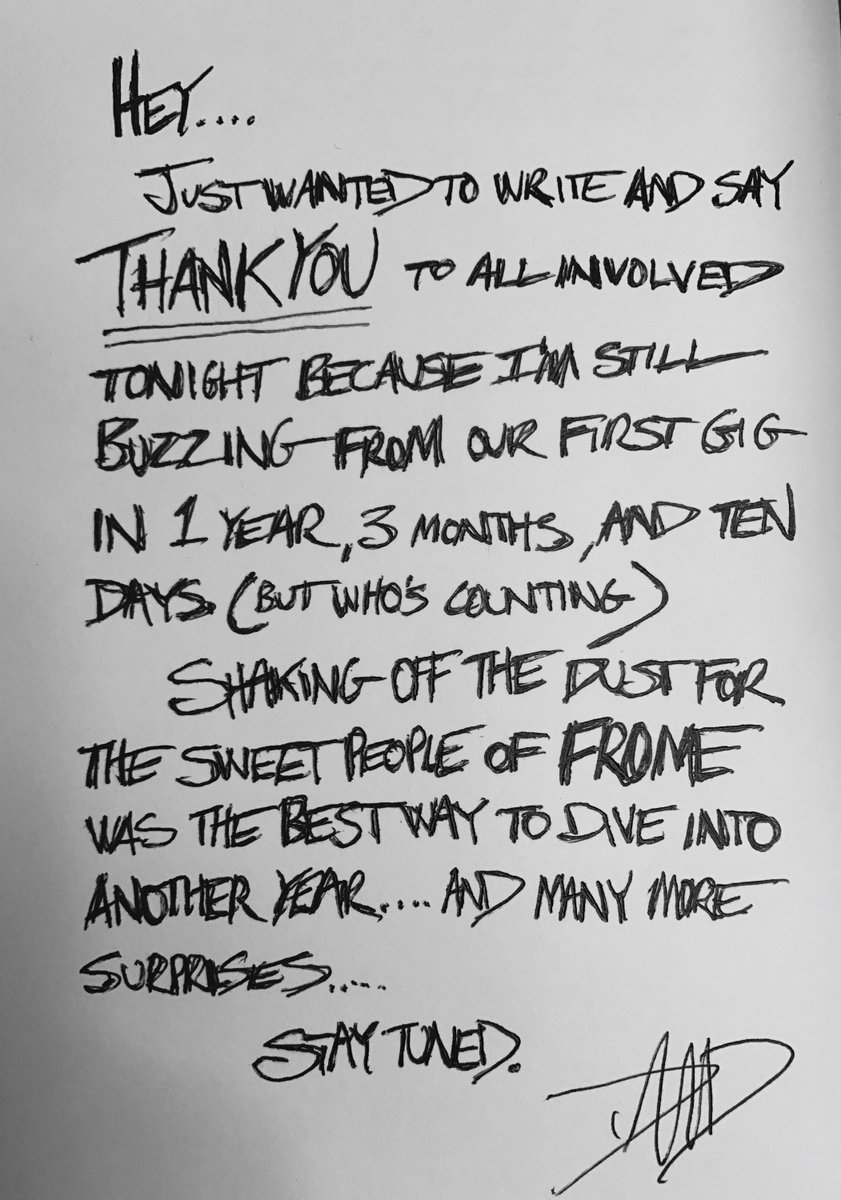 HEY....
JUST WANTED TO WRITE AND SAY
THANK YOU TO ALL INVOLVED
TONIGHT BECAUSE I'M STILL
BUZZING FROM OUR FIRST GIG
IN 1 YEAR, 3 MONTHS, AND TEN
DAYS. (BUT WHO'S COUNTING)
SHAKING OFF THE DUST FOR
THE SWEET PEOPLE OF FROME
WAS THE BEST WAY TO DIVE INTO
ANOTHER YEAR.... AND MANY MORE
SURPRISES.....
STAY TUNED.